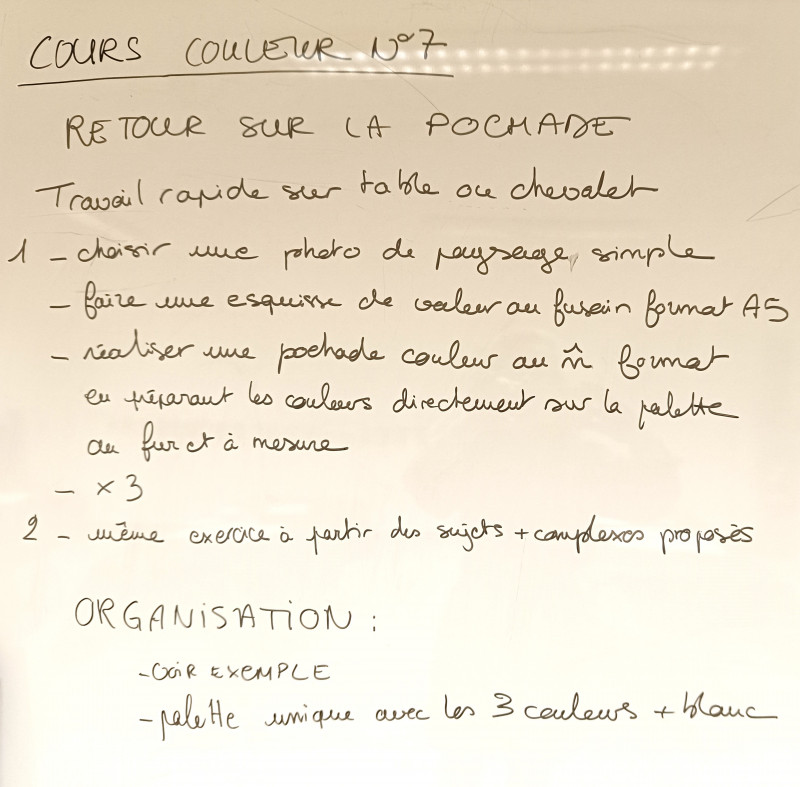 COURS COULEUR N°7
RETOUR SUR LA POCHADE
Travail rapide sur table ou chevalet
1 - choisir une photo de paysage simple
- faire une esquisse de valeur au fusain format A5
- réaliser une pochade couleur au m̂ format
en préparant les couleurs directement sur la palette
au fur et à mesure
- × 3
2 - même exercice à partir des sujets + complexes proposés
ORGANISATION :
- VOIR EXEMPLE
- palette unique avec les 3 couleurs + blanc